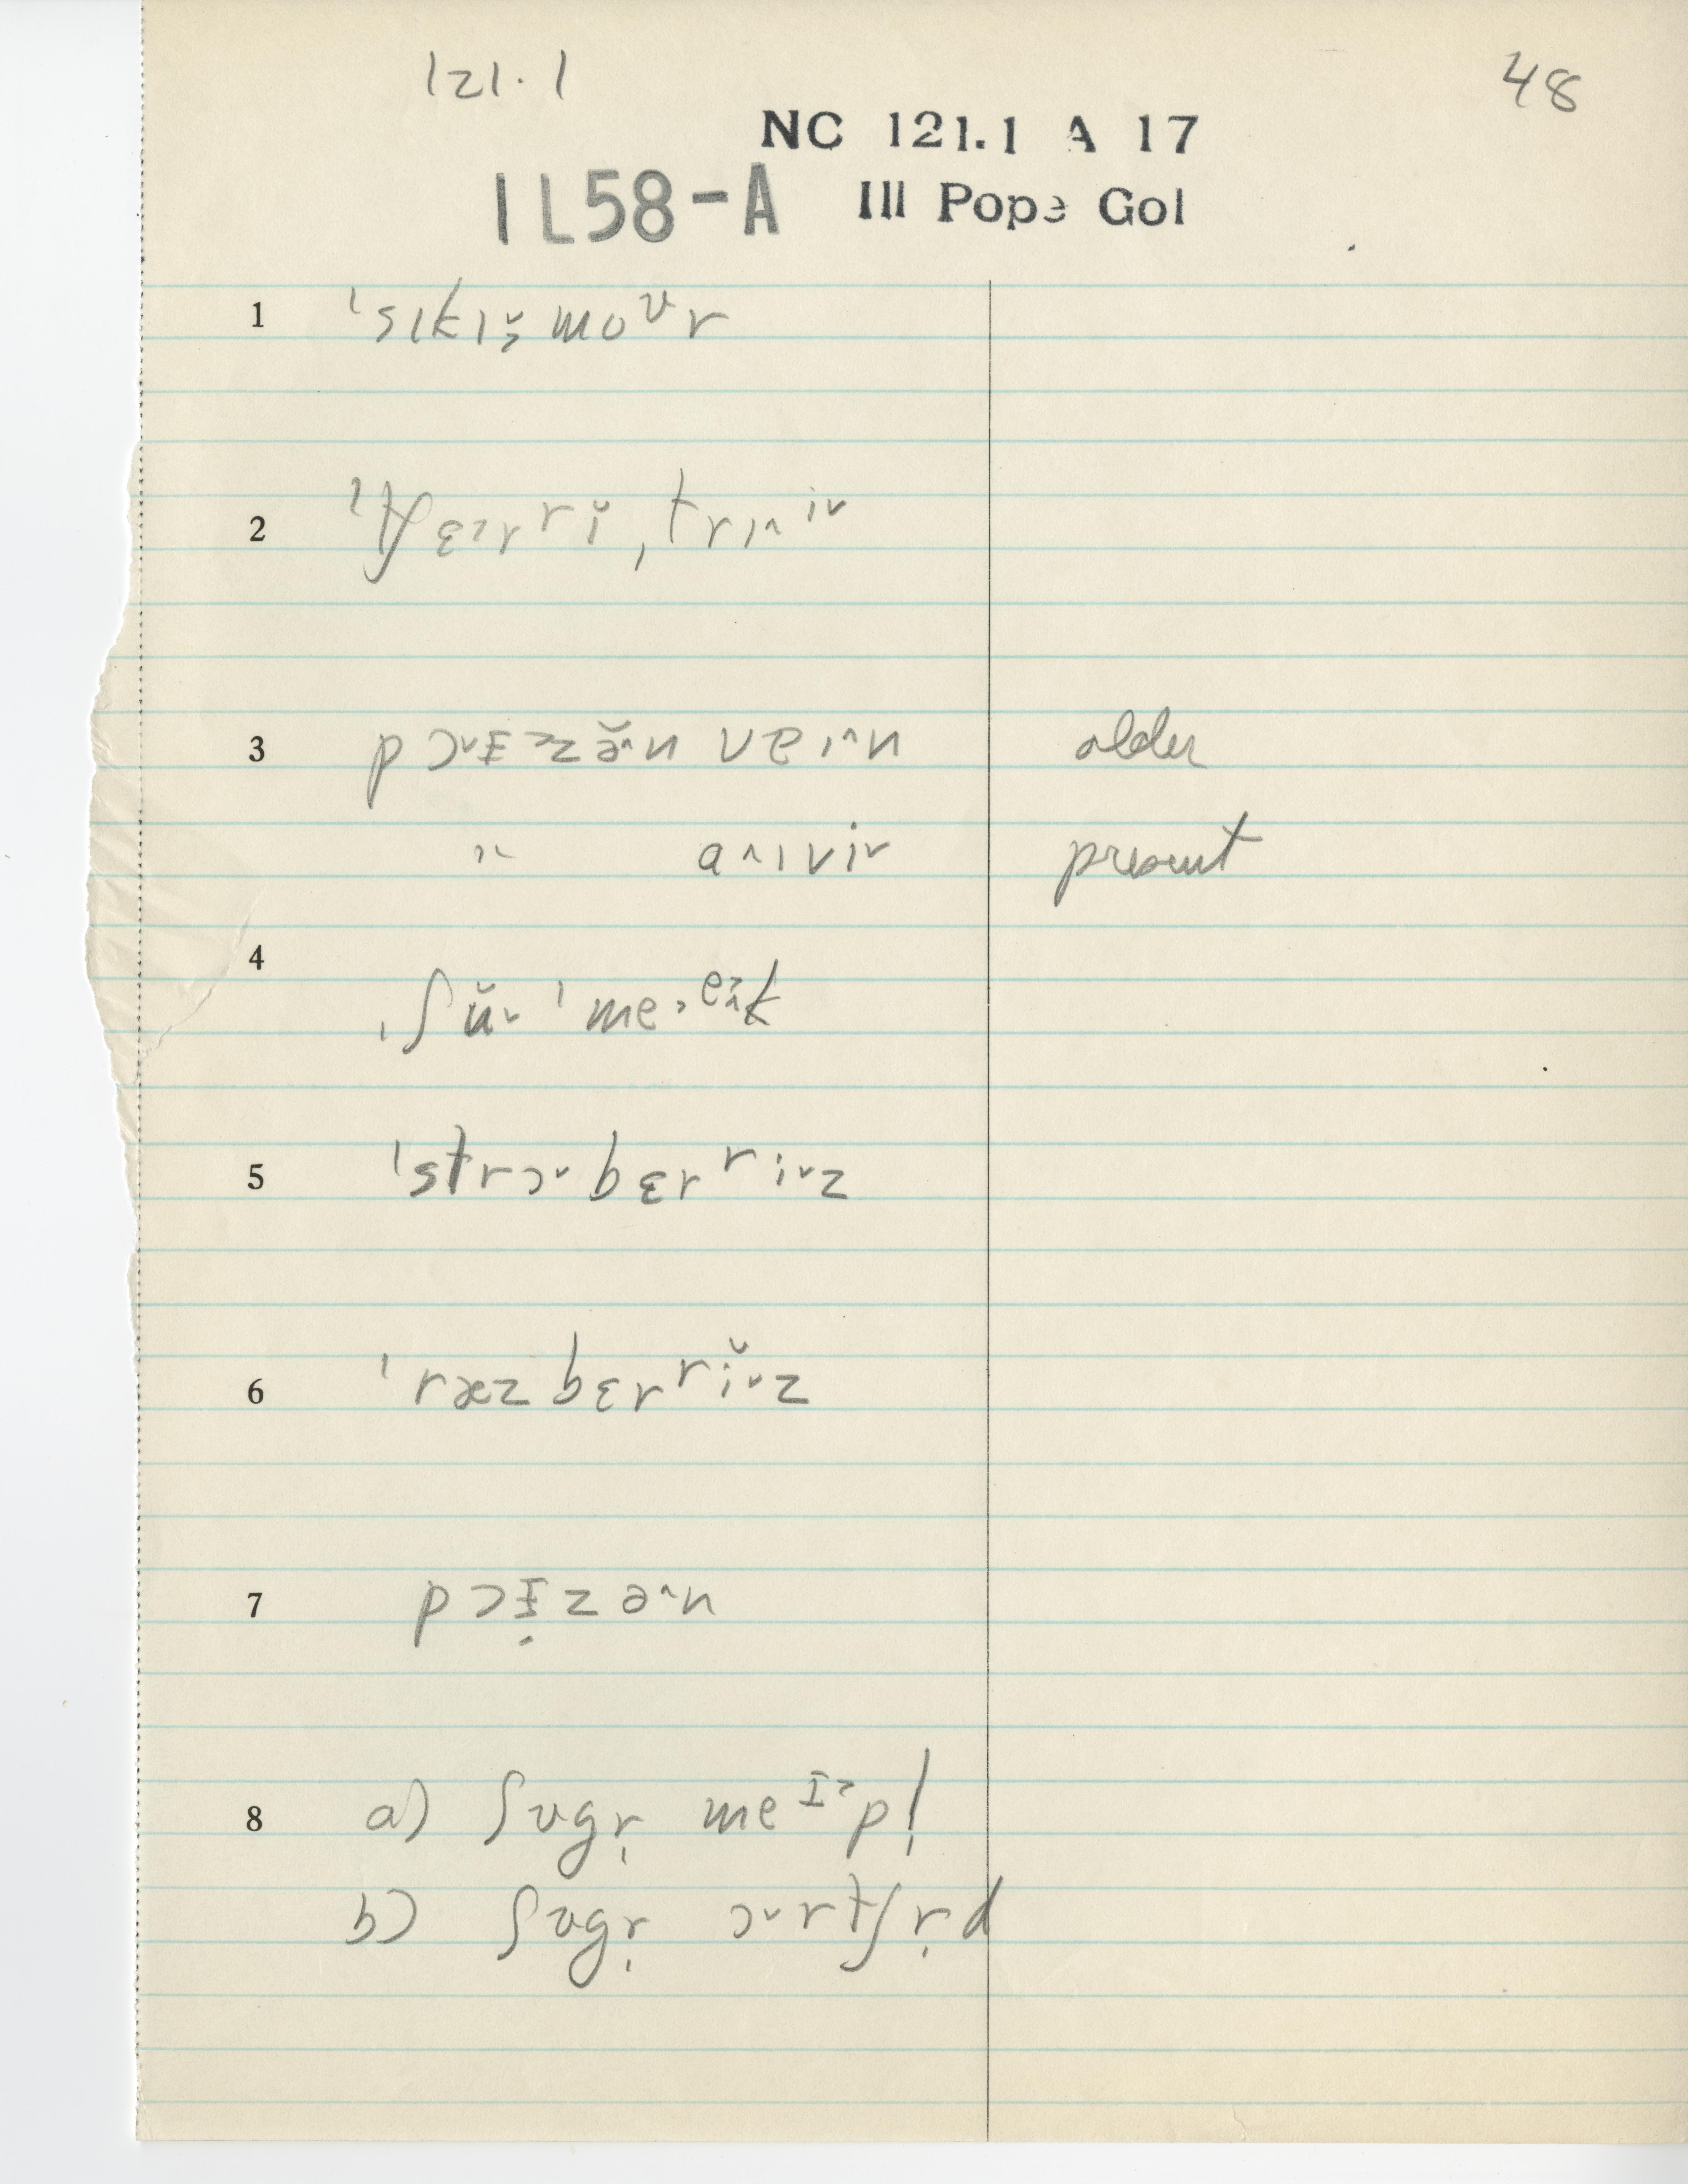 121.1
48
NC 121.1 A 17
1L58-A Ill Pope Gol
1 ˈsɪkɪ̬̆moʊr
2 ˈtʃɛ˞rrĭ ˌtrɪ^i˅
3 pɔ˅ɪzə̆n vaɪ^n older
" a^ɪvi˅ present
4
ˌʃŭ˅ ˈme·eɪt
5 ˈstrɔ˅bɛrri˅z
6 ˈræzbɛrrĭ˅z
7 pɔɪzə^n
8 a) ʃʊgr̩ meɪpl̩
b) ʃʊgr̩ ɔ˅rtʃr̩d